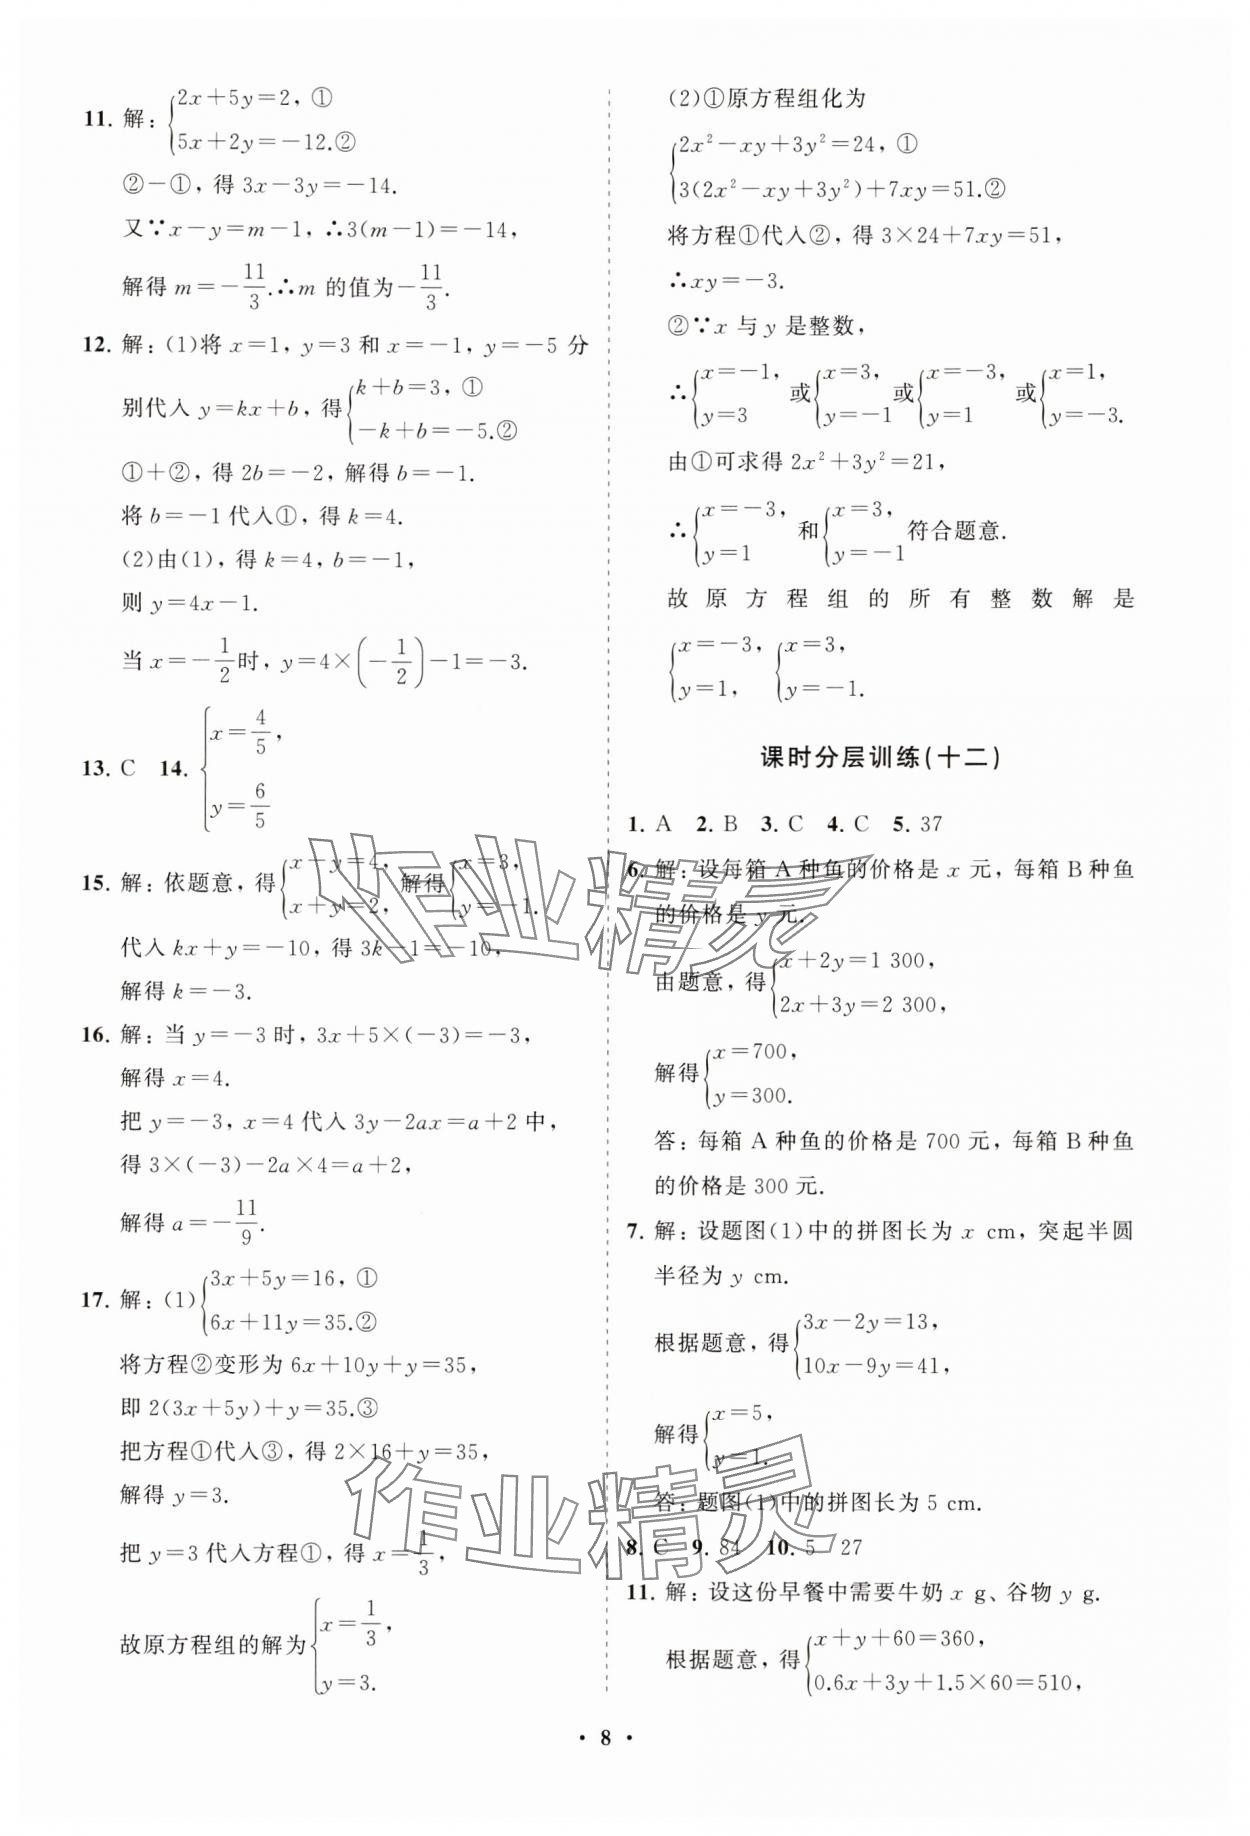 11. 解：{2x+5y=2，①
5x+2y=-12.②
②-①，得 3x-3y=-14.
又∵x-y=m-1，∴3(m-1)=-14，
解得 m=-11/3.∴m 的值为-11/3.
12. 解：(1)将 x=1，y=3 和 x=-1，y=-5 分
别代入 y=kx+b，得{k+b=3，①
-k+b=-5.②
①+②，得 2b=-2，解得 b=-1.
将 b=-1 代入①，得 k=4.
(2)由(1)，得 k=4，b=-1，
则 y=4x-1.
当 x=-1/2时，y=4×(-1/2)-1=-3.
13. C 14. {x=4/5，
y=6/5
15. 解：依题意，得{x-y=4，
x+y=2，解得{x=3，
y=-1.
代入 kx+y=-10，得 3k-1=-10，
解得 k=-3.
16. 解：当 y=-3 时，3x+5×(-3)=-3，
解得 x=4.
把 y=-3，x=4 代入 3y-2ax=a+2 中，
得 3×(-3)-2a×4=a+2，
解得 a=-11/9.
17. 解：(1){3x+5y=16，①
6x+11y=35.②
将方程②变形为 6x+10y+y=35，
即 2(3x+5y)+y=35.③
把方程①代入③，得 2×16+y=35，
解得 y=3.
把 y=3 代入方程①，得 x=1/3，
故原方程组的解为{x=1/3，
y=3.
(2)①原方程组化为
{2x²-xy+3y²=24，①
3(2x²-xy+3y²)+7xy=51.②
将方程①代入②，得 3×24+7xy=51，
∴xy=-3.
②∵x 与 y 是整数，
∴{x=-1，
y=3 或{x=3，
y=-1 或{x=-3，
y=1 或{x=1，
y=-3.
由①可求得 2x²+3y²=21，
∴{x=-3，
y=1 和{x=3，
y=-1 符合题意.
故原方程组的所有整数解是
{x=-3，
y=1， {x=3，
y=-1.
课时分层训练(十二)
1. A 2. B 3. C 4. C 5. 37
6. 解：设每箱 A 种鱼的价格是 x 元，每箱 B 种鱼
的价格是 y 元.
由题意，得{x+2y=1 300，
2x+3y=2 300，
解得{x=700，
y=300.
答：每箱 A 种鱼的价格是 700 元，每箱 B 种鱼
的价格是 300 元.
7. 解：设题图(1)中的拼图长为 x cm，突起半圆
半径为 y cm.
根据题意，得{3x-2y=13，
10x-9y=41，
解得{x=5，
y=1.
答：题图(1)中的拼图长为 5 cm.
8. C 9. 84 10. 5 27
11. 解：设这份早餐中需要牛奶 x g、谷物 y g.
根据题意，得{x+y+60=360，
0.6x+3y+1.5×60=510，
· 8 ·
作业精灵
作业精灵